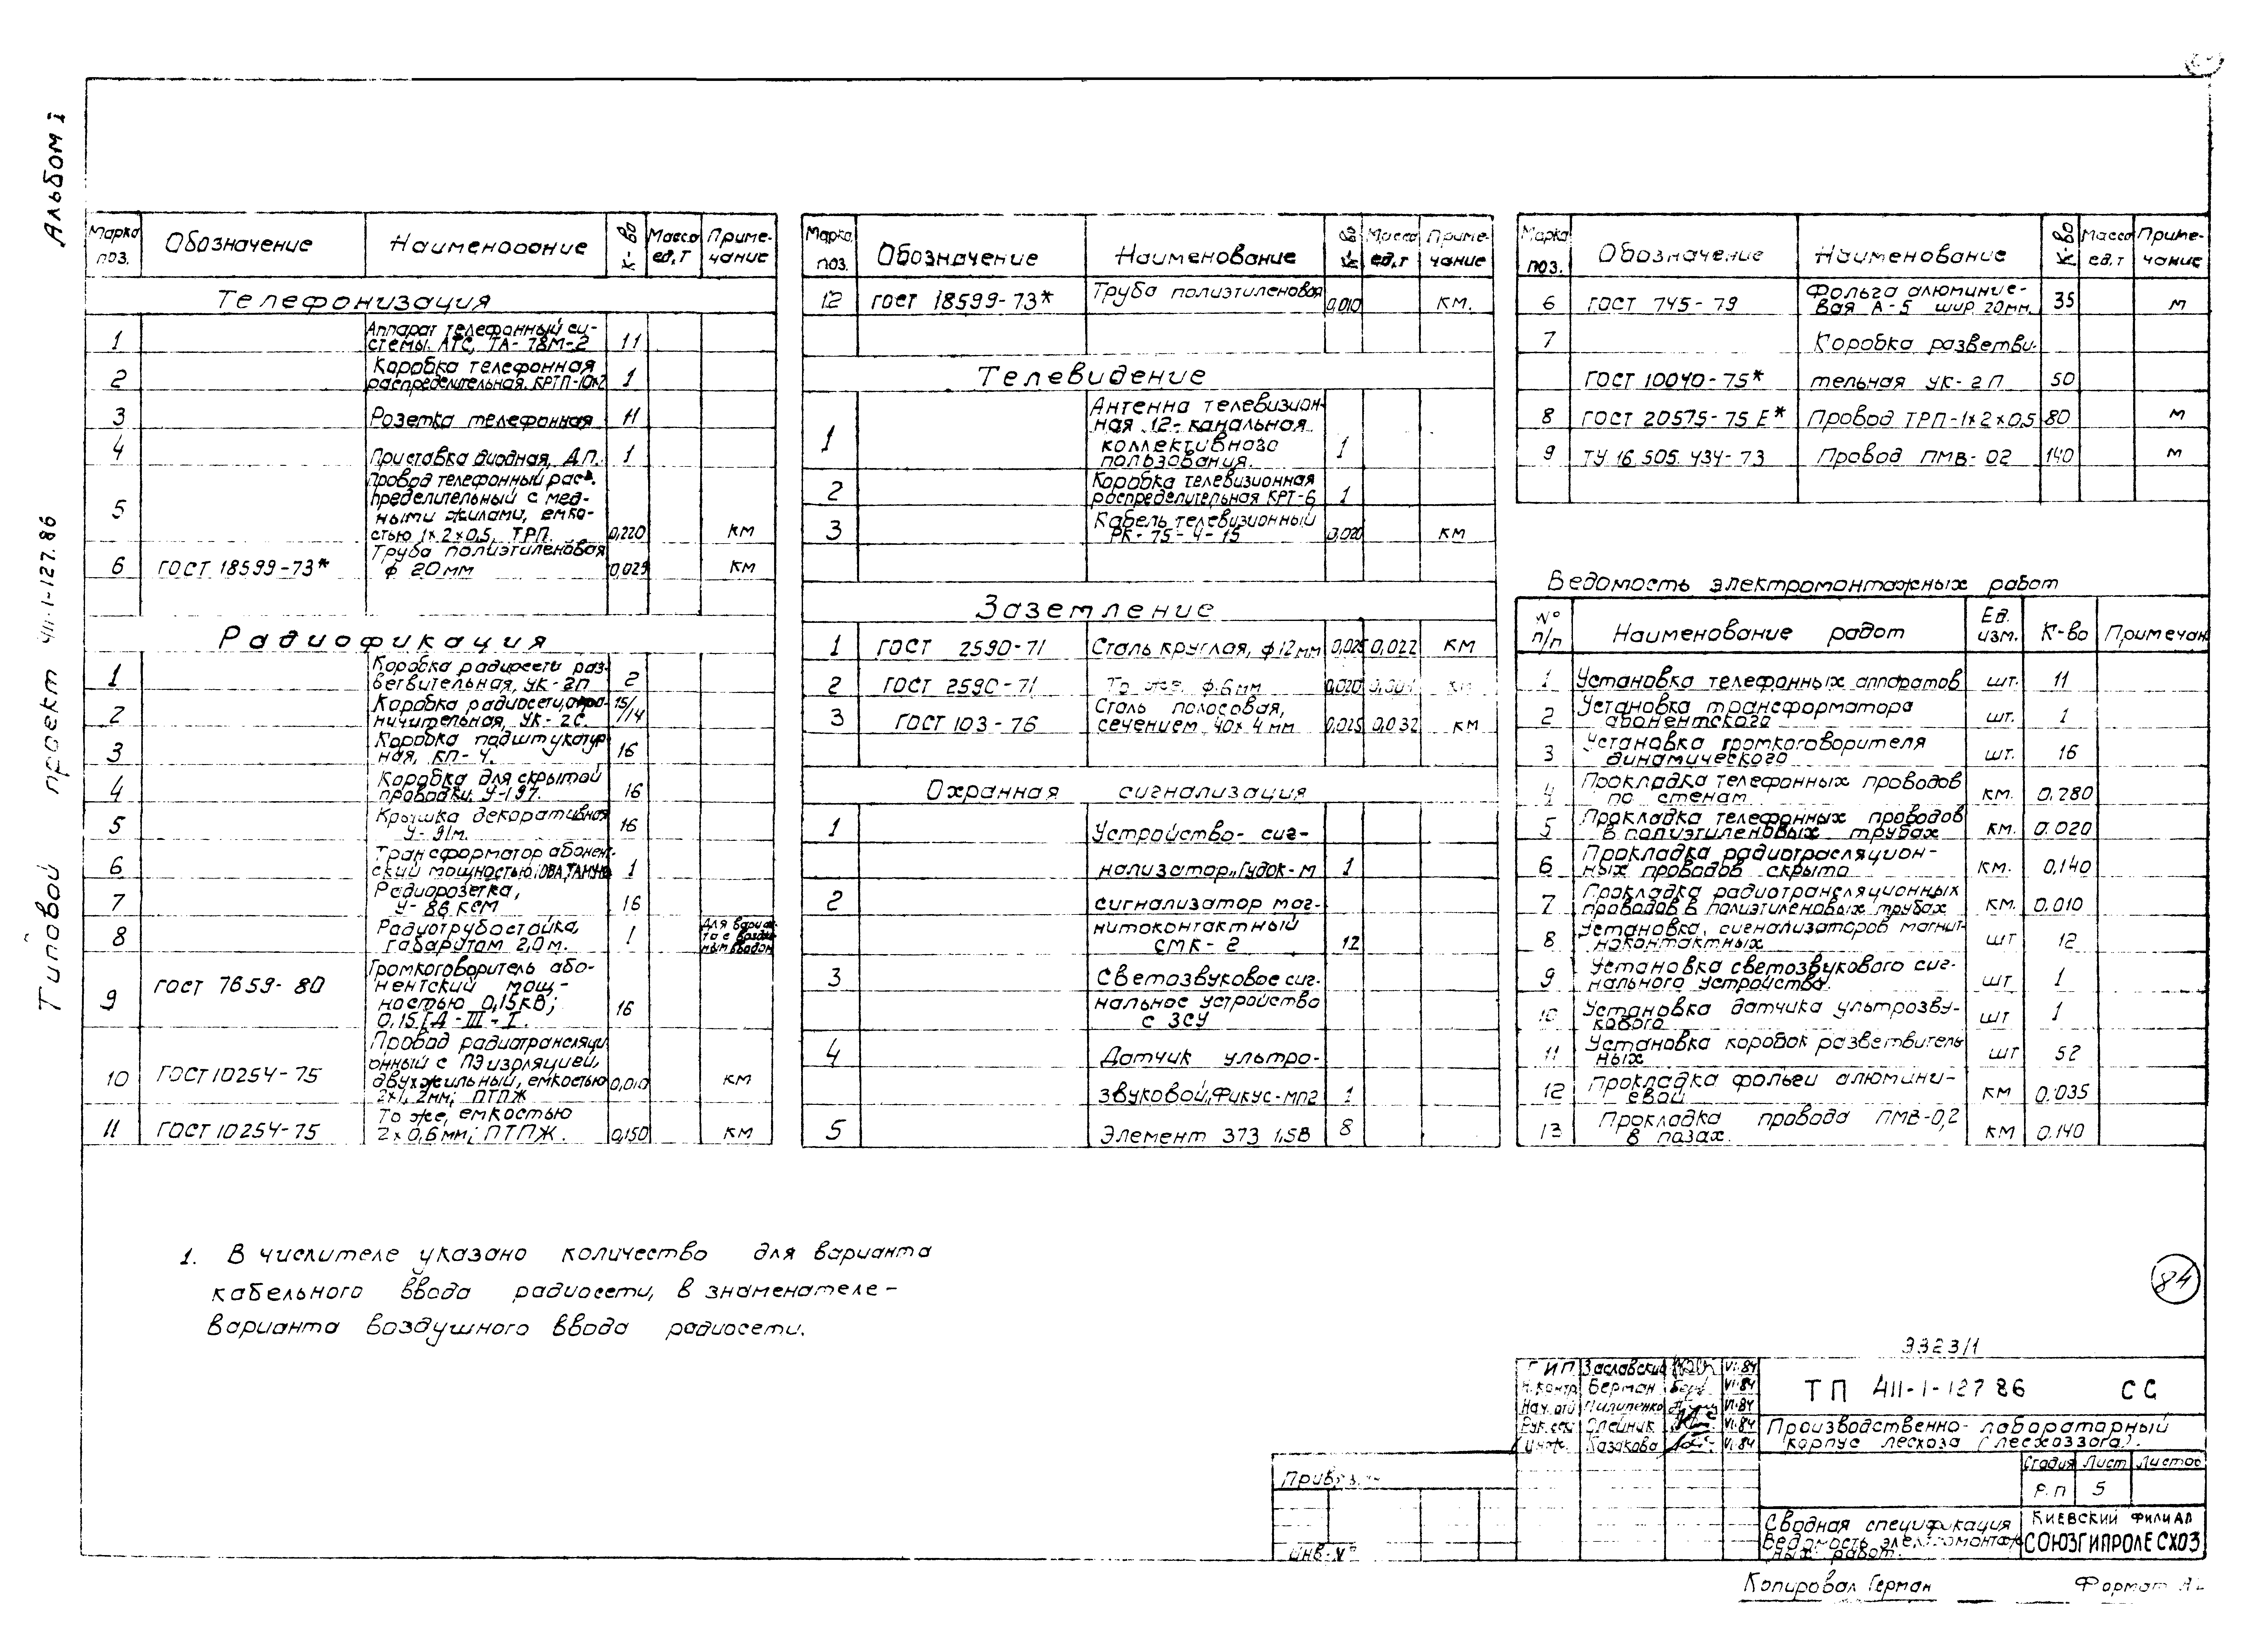 Альбом I
Типовой проект 411-1-127.86
Марка поз. Обозначение Наименование К-во Масса ед,т Примечание
Телефонизация
1 Аппарат телефонный си-
стемы АТС, ТА-78М-2 11
2 Коробка телефонная
распределительная КРТП-10х2 1
3 Розетка телефонная 11
4 Приставка диодная, Д.П. 1
5 Провод телефонный рас-
пределительный с мед-
ными жилами, емко-
стью 1х2х0,5, ТРП. 0,220 км
6 ГОСТ 18599-73* Труба полиэтиленовая
ф 20мм 0,025 км
Радиофикация
1 Коробка радиосети раз-
ветвительная, УК-2П 2
2 Коробка радиосети, огра-
ничительная, УК-2С. 15/14
3 Коробка подштукатур
ная, КП-4. 16
4 Коробка для скрытой
проводки, У-197. 16
5 Крышка декоративная
У-91м. 16
6 Трансформатор абонент-
ский мощностью 1
7 Радиорозетка,
У-86 КСМ 16
8 Радиотрубостойка,
габаритам 2,0м. 1 Для вариан-
та с воздуш-
ным вводом
9 ГОСТ 7659-80 Громкоговоритель або-
нентский мощ-
ностью 0,15кв;
0,15ГД-III-I. 16
10 ГОСТ 10254-75 Провод радиотрансляци
онный с ПЭ изоляцией,
двухжильный, емкостью
2х1,2мм; ПТПЖ 0,010 км
11 ГОСТ 10254-75 То же, емкостью
2х0,6мм; ПТПЖ. 0,150 км
Марка поз. Обозначение Наименование К-во Масса ед,т Примечание
12 ГОСТ 18599-73* Труба полиэтиленовая 0,010 км.
Телевидение
1 Антенна телевизион-
ная 12-канальная
коллективного
пользования. 1
2 Коробка телевизионная
распределительная КРТ-6 1
3 Кабель телевизионный
РК-75-4-15 0,020 км
Заземление
1 ГОСТ 2590-71 Сталь круглая, ф12мм 0,025 0,022 км
2 ГОСТ 2590-71 То же ф.6мм 0,020 км
3 ГОСТ 103-76 Сталь полосовая,
сечением 40х4мм 0,025 0,032 км
Охранная сигнализация
1 Устройство-сиг-
нализатор „Гудок-М 1
2 сигнализатор маг-
нитоконтактный
СМК-2 12
3 Светозвуковое сиг-
нальное устройство
с ЗСУ
4 Датчик ультра-
звуковой „Фикус-мп2 1
5 Элемент 373 1,5В 8
Марка поз. Обозначение Наименование К-во Масса ед,т Примечание
6 ГОСТ 745-79 Фольга алюминие-
вая А-5 шир 20мм. 35 м
7 Коробка разветви-
ГОСТ 10040-75* тельная УК-2П 50
8 ГОСТ 20575-75 Е* Провод ТРП-1х2х0,5 80 м
9 ТУ 16 505. 434-73 Провод ПМВ-02 140 м
Ведомость электромонтажных работ
N° п/п Наименование работ Ед. изм. К-во Примечан.
1 Установка телефонных аппаратов шт. 11
2 Установка трансформатора
абонентского шт. 1
3 Установка громкоговорителя
динамического шт. 16
4 Прокладка телефонных проводов
по стенам км. 0.280
5 Прокладка телефонных проводов
в полиэтиленовых трубах км. 0.020
6 Прокладка радиотрасляцион-
ных проводов скрыто км. 0,140
7 Прокладка радиотрансляционных
проводов в полиэтиленовых трубах км. 0.010
8 Установка, сигнализаторов магнит-
ноконтактных шт 12
9 Установка светозвукового сиг-
нального устройства. шт 1
10 Установка датчика ультрозву-
кового шт 1
11 Установка коробок разветвитель
ных шт 52
12 Прокладка фольги алюмини-
евой км 0.035
13 Прокладка провода ПМВ-0,2
в пазах. км 0.140
1. В числителе указано количество для варианта
кабельного ввода радиосети, в знаменателе-
варианта воздушного ввода радиосети.
84
9323/1
ГИП Заславский VI.84
Н.контр Берман VI.84
Нач.отд Пилипенко VI.84
Рук.сек Олейник VI.84
Инж. Казакова VI.84
ТП 411-1-127 86 СС
Производственно-лабораторный
корпус лесхоза (лесхоззага).
Стадия Лист Листов
Р.П 5
Сводная спецификация
Ведомость электромонтаж
ных работ.
Киевский филиал
СОЮЗГИПРОЛЕСХОЗ
Инв. №
Копировал Герман
Формат